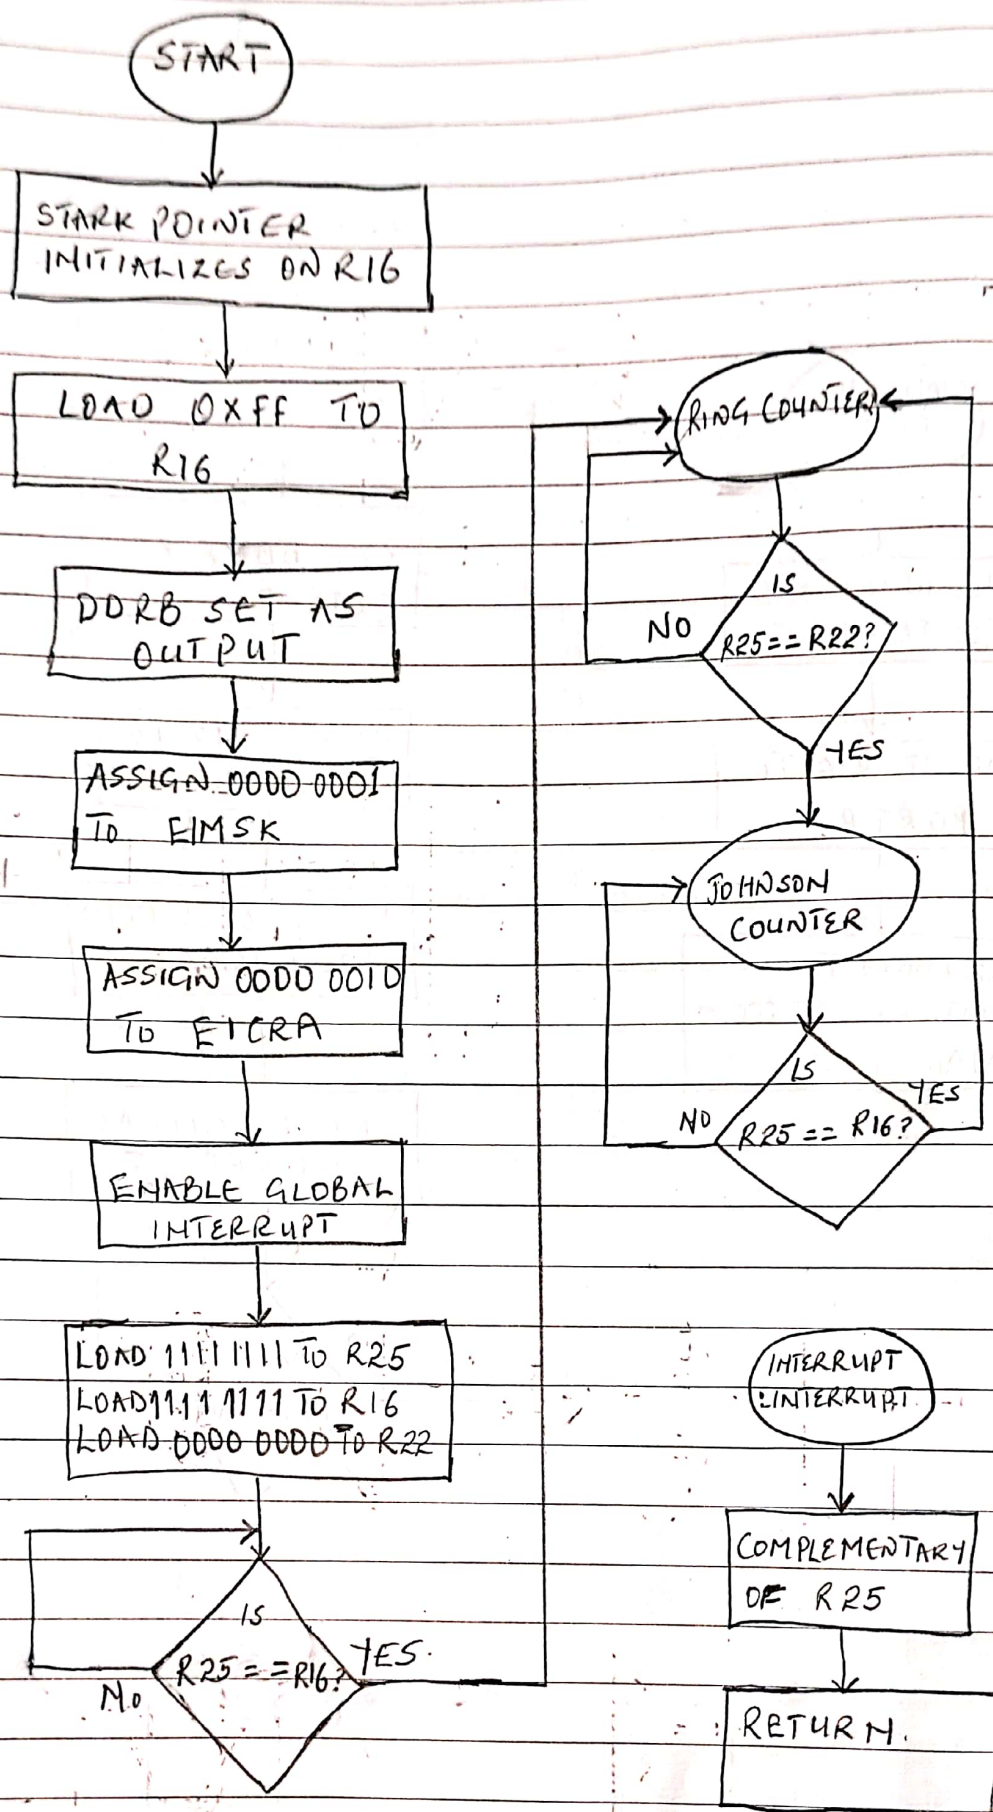 START
STARK POINTER
INITIALIZES ON R16
LOAD 0XFF TO
R16
DDRB SET AS
OUTPUT
ASSIGN 0000 0001
TO EIMSK
ASSIGN 0000 0010
TO EICRA
ENABLE GLOBAL
INTERRUPT
LOAD 1111 1111 TO R25
LOAD 1111 1111 TO R16
LOAD 0000 0000 TO R22
IS
R25==R16?
YES
NO
RING COUNTER
IS
R25==R22?
NO
YES
JOHNSON
COUNTER
IS
R25 == R16?
NO
YES
INTERRUPT
:INTERRUPT
COMPLEMENTARY
OF R25
RETURN.